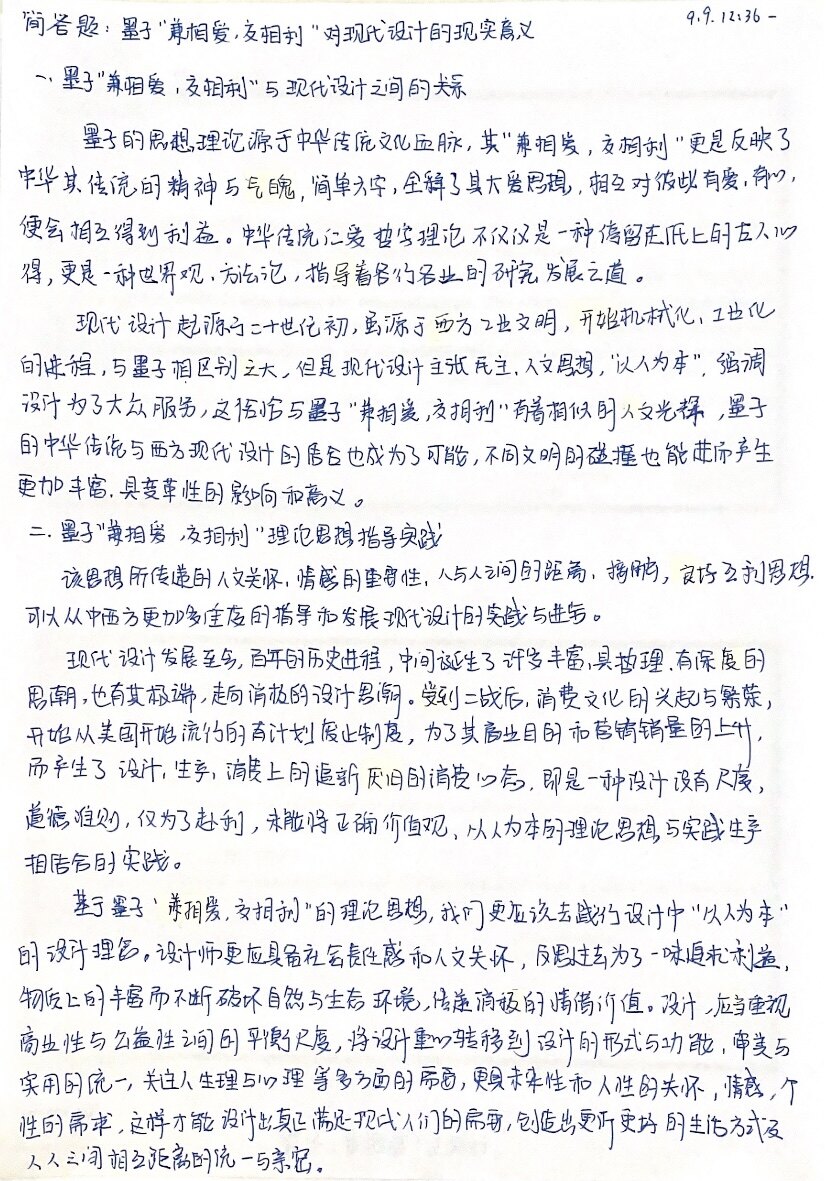 简答题：墨子"兼相爱，交相利"对现代设计的现实意义
9.9.12:36-
一、墨子"兼相爱，交相利"与现代设计之间的关系
墨子的思想理论源于中华传统文化血脉，其"兼相爱，交相利"更是反映了
中华其传统的精神与气魄，简单六字，全释了其大爱思想，相互对彼此有爱，有心，
便会相互得到利益。中华传统仁爱哲学理论不仅仅是一种停留在纸上的古人心
得，更是一种世界观、方法论，指导着各行各业的研究发展之道。
现代设计起源于二十世纪初，虽源于西方工业文明，开始机械化、工业化
的进程，与墨子相区别之大，但是现代设计主张民主、人文思想，"以人为本"，强调
设计为了大众服务，这恰恰与墨子"兼相爱，交相利"有着相似的人文光辉，墨子
的中华传统与西方现代设计的结合也成为了可能，不同文明的碰撞也能进而产生
更加丰富、具变革性的影响和意义。
二、墨子"兼相爱，交相利"理论思想指导实践
该思想所传递的人文关怀，情感的重要性，人与人之间的距离、接触，良好互利思想，
可以从中西方更加多维度的指导和发展现代设计的实践与进步。
现代设计发展至今，百年的历史进程，中间诞生了许多丰富、具哲理、有深度的
思潮，也有其极端，走向消极的设计思潮。受到二战后，消费文化的兴起与繁荣，
开始从美国开始流行的有计划废止制度，为了其商业目的和营销销量的上升，
而产生了设计，生产，消费上的追新厌旧的消费心态，即是一种设计没有尺度，
道德准则，仅为了赴利，未能将正确价值观、以人为本的理论思想与实践生产
相结合的实践。
基于墨子"兼相爱，交相利"的理论思想，我们更应该去践行设计中"以人为本"
的设计理念。设计师更应具备社会责任感和人文关怀，反思过去为了一味追求利益，
物质上的丰富而不断破坏自然与生态环境，传递消极的情绪价值。设计，应当重视
商业性与公益性之间的平衡尺度，将设计重心转移到设计的形式与功能，审美与
实用的统一，关注人生理与心理等多方面的需要，更具未来性和人性的关怀，情感，个
性的需求，这样才能设计出真正满足现代人们的需要，创造出更新更好的生活方式及
人人之间相互距离的统一与亲密。